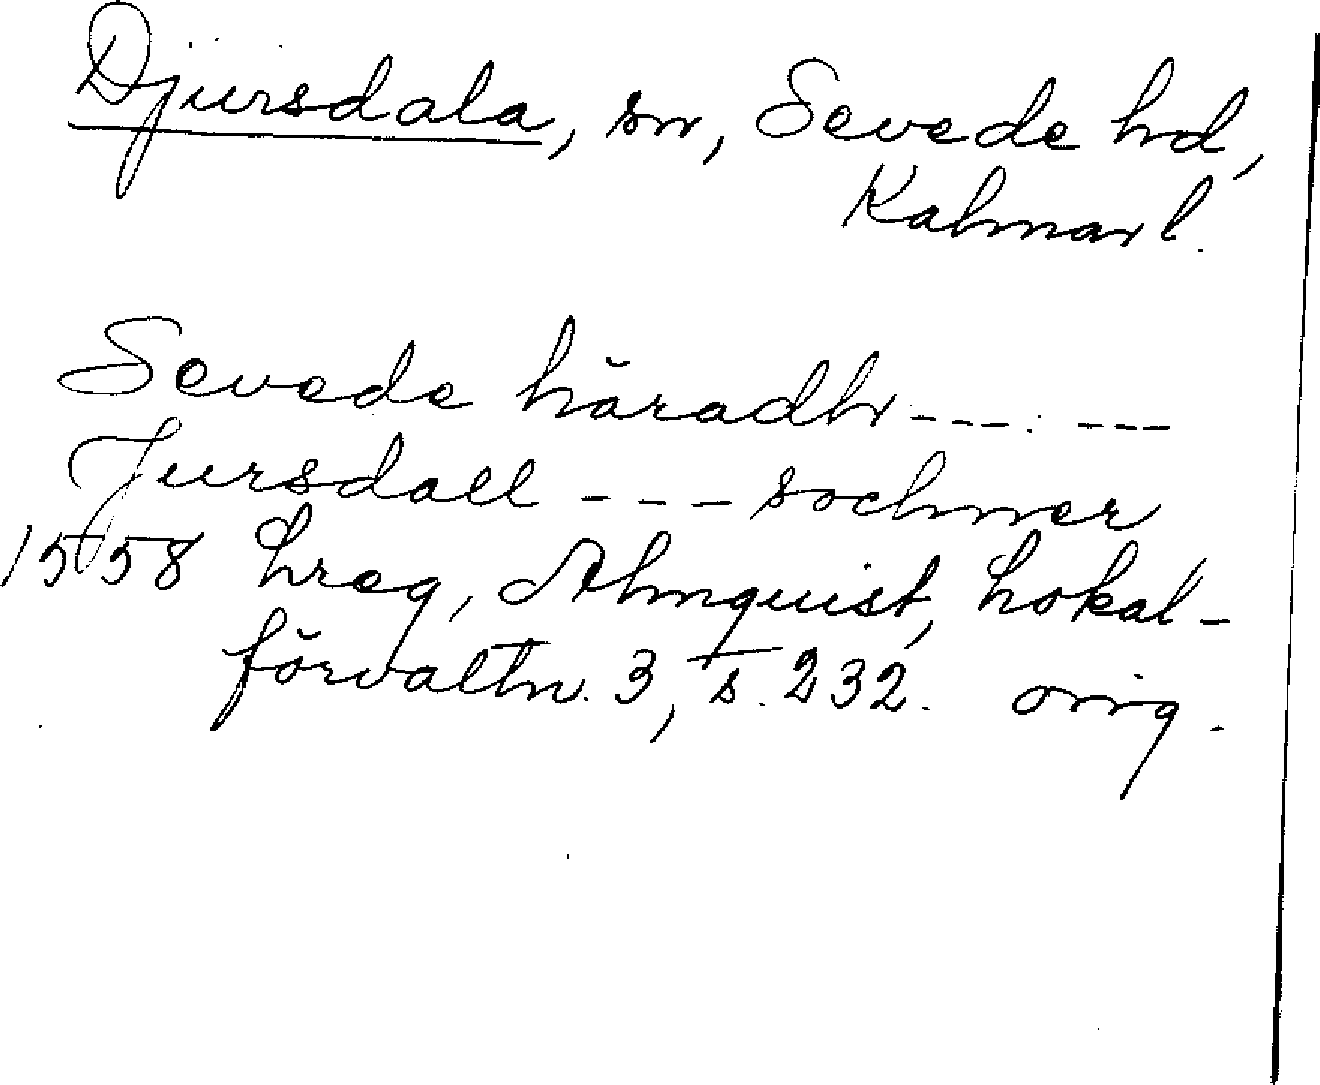 Djursdala, sn, Sevede hd,
Kalmar l.
Sevede häradh --- ---
Jursdall --- sochner
1558 hreg, Almquist, Lokal-
förvaltn. 3, s. 232. orig.